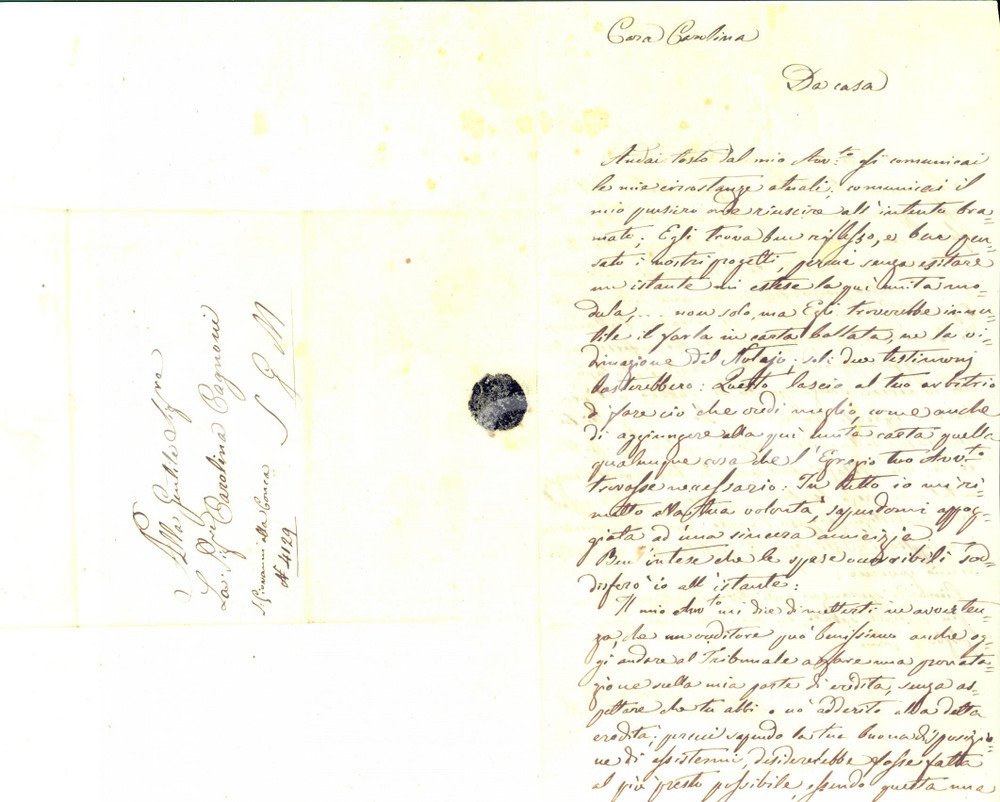 Cara Carolina
Da casa
Andai tosto dal mio Avv.to gli comunicai
le mie circostanze attuali; comunicai il
mio pensiero onde riuscire all'intento bra=
mato; Egli trova ben riflesso, e ben pen=
sato i nostri progetti, perciò senza esitare
un istante mi estese la quì unita mo=
dula, ... non solo, ma Egli troverebbe inu=
tile il farla in carta bollata, ne la vi=
dimazione del Notajo; soli due testimonj
basterebbero: Questo lascio al tuo arbitrio
di fare ciò che credi meglio, come anche
di aggiungere alla quì unita carta quella
qualunque cosa che l'Egregio tuo Avv.to
trovasse necessario: In tutto io mi ri=
metto alla tua volontà, sapendomi appog=
giata ad una sincera amicizia.
Ben intese che le spese occoribili sod=
disferò io all'istante:
Il mio Avv.to mi dice di metterti in avverten=
za, che un creditore può benissimo anche og=
gi andare al Tribunale a fare una pronota=
zione sulla mia parte di eredità, senza as=
pettare che tu abbi o nò adderito alla detta
eredità; perciò sapendo la tua buona disposizio=
ne di assistermi, desidererebbe fosse fatta
al più presto possibile, essendo questa una
Alla Gentile
La Sig.
Carolina Cagnoni
S. Giovanni alla Conca
N 4129
S P M